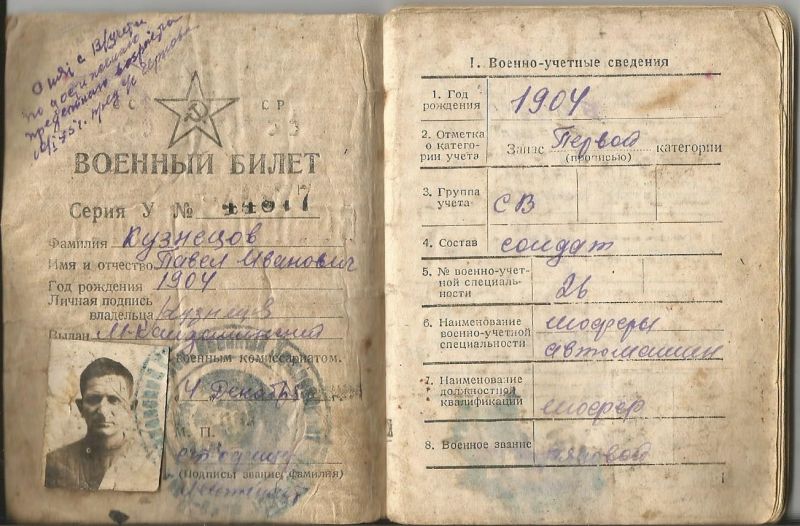 Снят с В/учета
по достижению
предельного возраста
С СР
ВОЕННЫЙ БИЛЕТ
Серия У №
Фамилия Кузнецов
Имя и отчество Павел Иванович
Год рождения 1904
Личная подпись
владельца Кузнецов
Выдан
военным комиссариатом.
4 Декабр
П.
(Подпись звание, фамилия)
I. Военно-учетные сведения
1. Год
рождения 1904
2. Отметка
о катего-
рии учета Запас Первой категории
(прописью)
3. Группа
учета СВ
4. Состав солдат
5. № военно-учет-
ной специаль-
ности 26
6. Наименование
военно-учетной
специальности шоферы
автомашин
7. Наименование
должностной
квалификации шофер
8. Военное звание рядовой
1